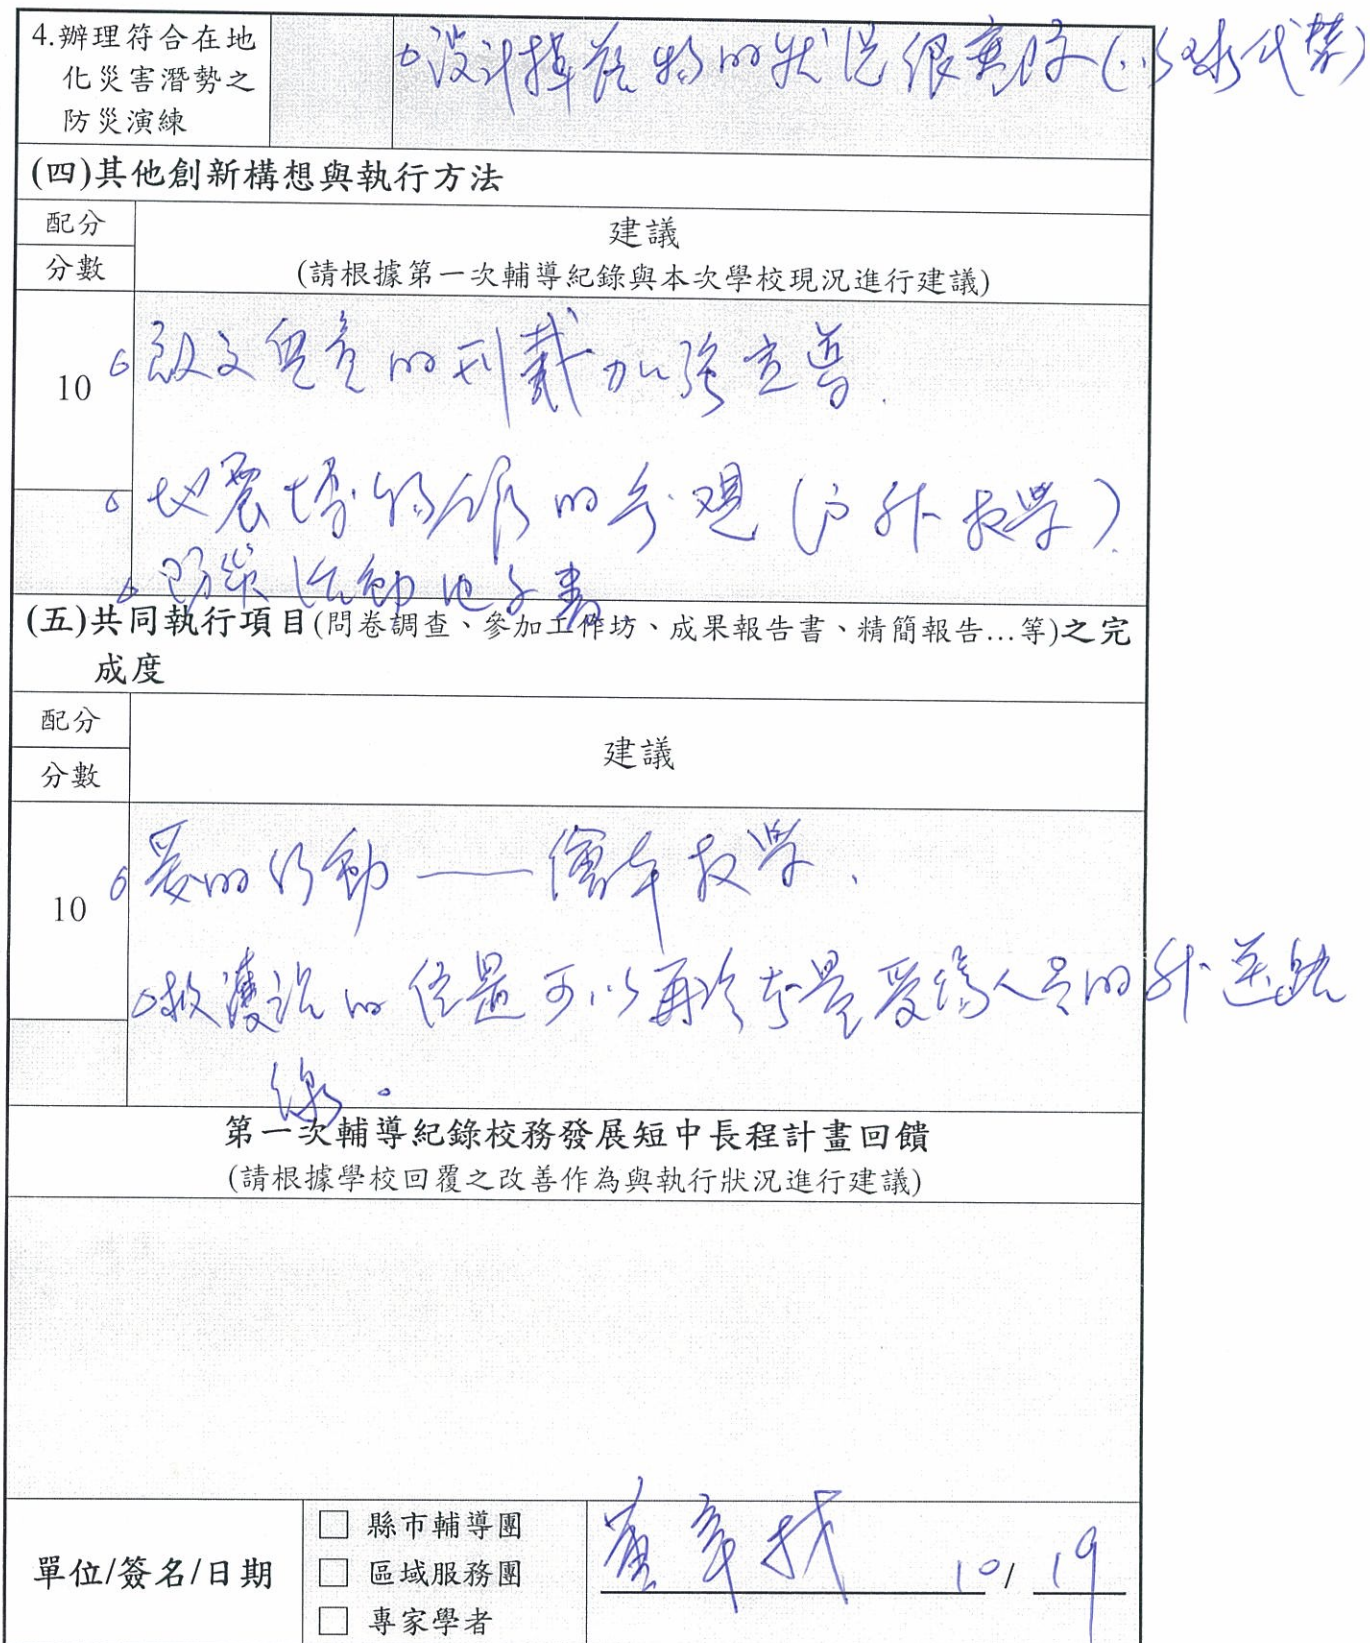 4.辦理符合在地
化災害潛勢之
防災演練
設計掉落物的狀況很實際(以球代替)
(四)其他創新構想與執行方法
配分
分數
建議
(請根據第一次輔導紀錄與本次學校現況進行建議)
10
的刊載加強宣導.
地震博物館的參觀(戶外教學).
防災活動也
(五)共同執行項目(問卷調查、參加工作坊、成果報告書、精簡報告…等)之完
成度
配分
分數
建議
10
愛的行動——繪本教學.
救護站的位置可以再考量受傷人員的外送路
線。
第一次輔導紀錄校務發展短中長程計畫回饋
(請根據學校回覆之改善作為與執行狀況進行建議)
單位/簽名/日期
□ 縣市輔導團
□ 區域服務團
□ 專家學者
10/19